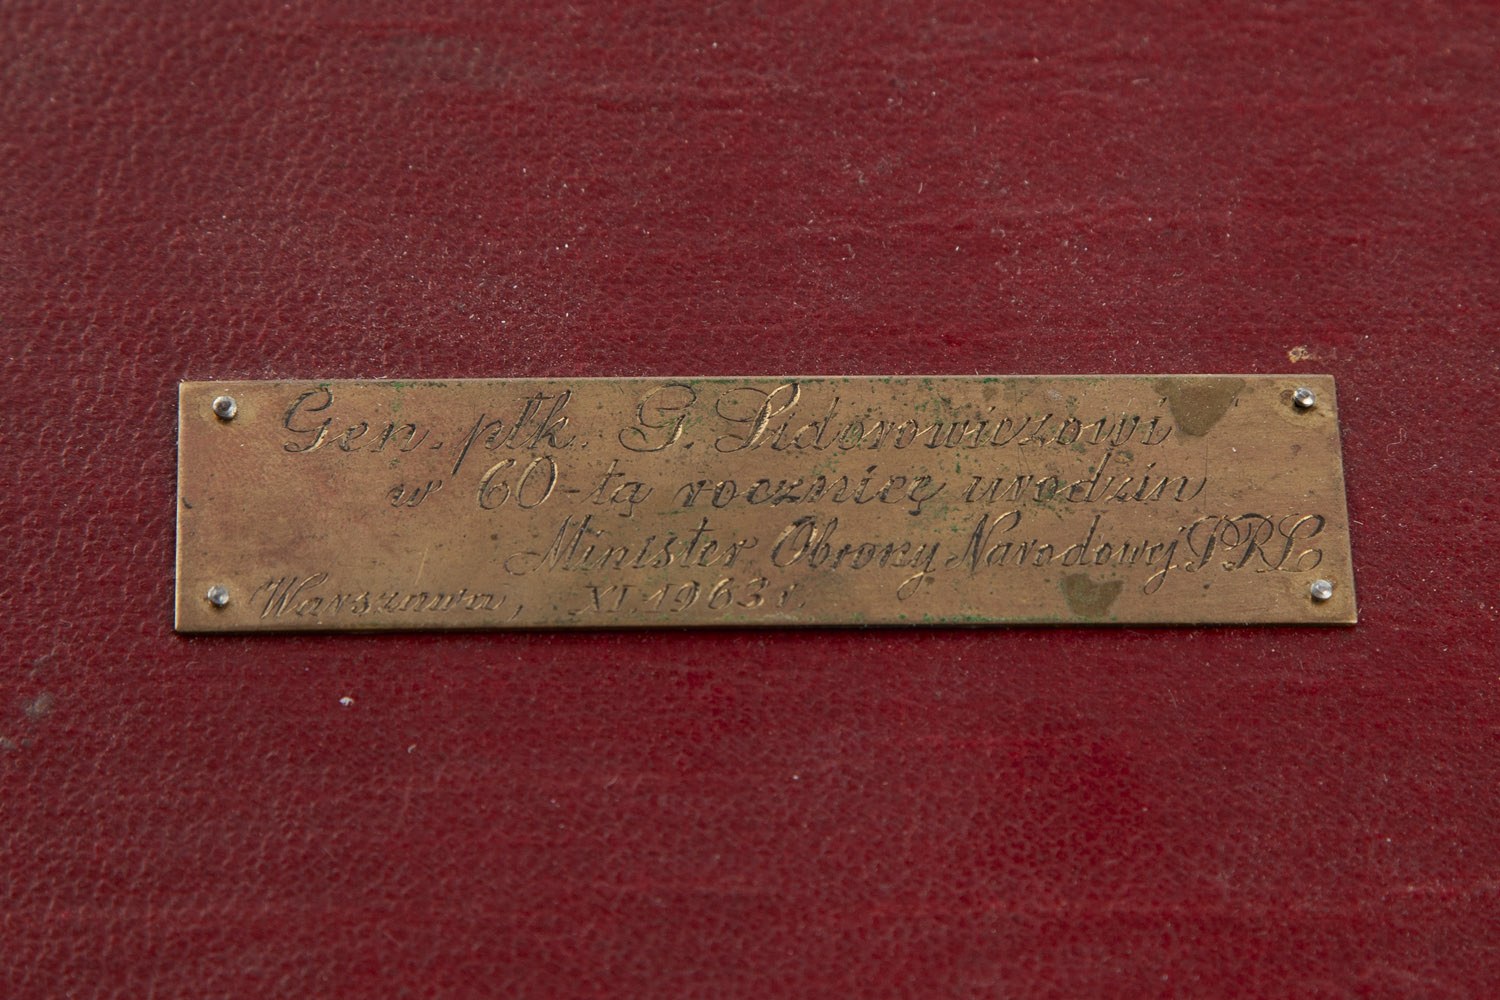 Gen. płk. G. Sidorowiczowi
w 60-tą rocznicę urodzin
Minister Obrony Narodowej PRL
Warszawa, XI. 1963 r.